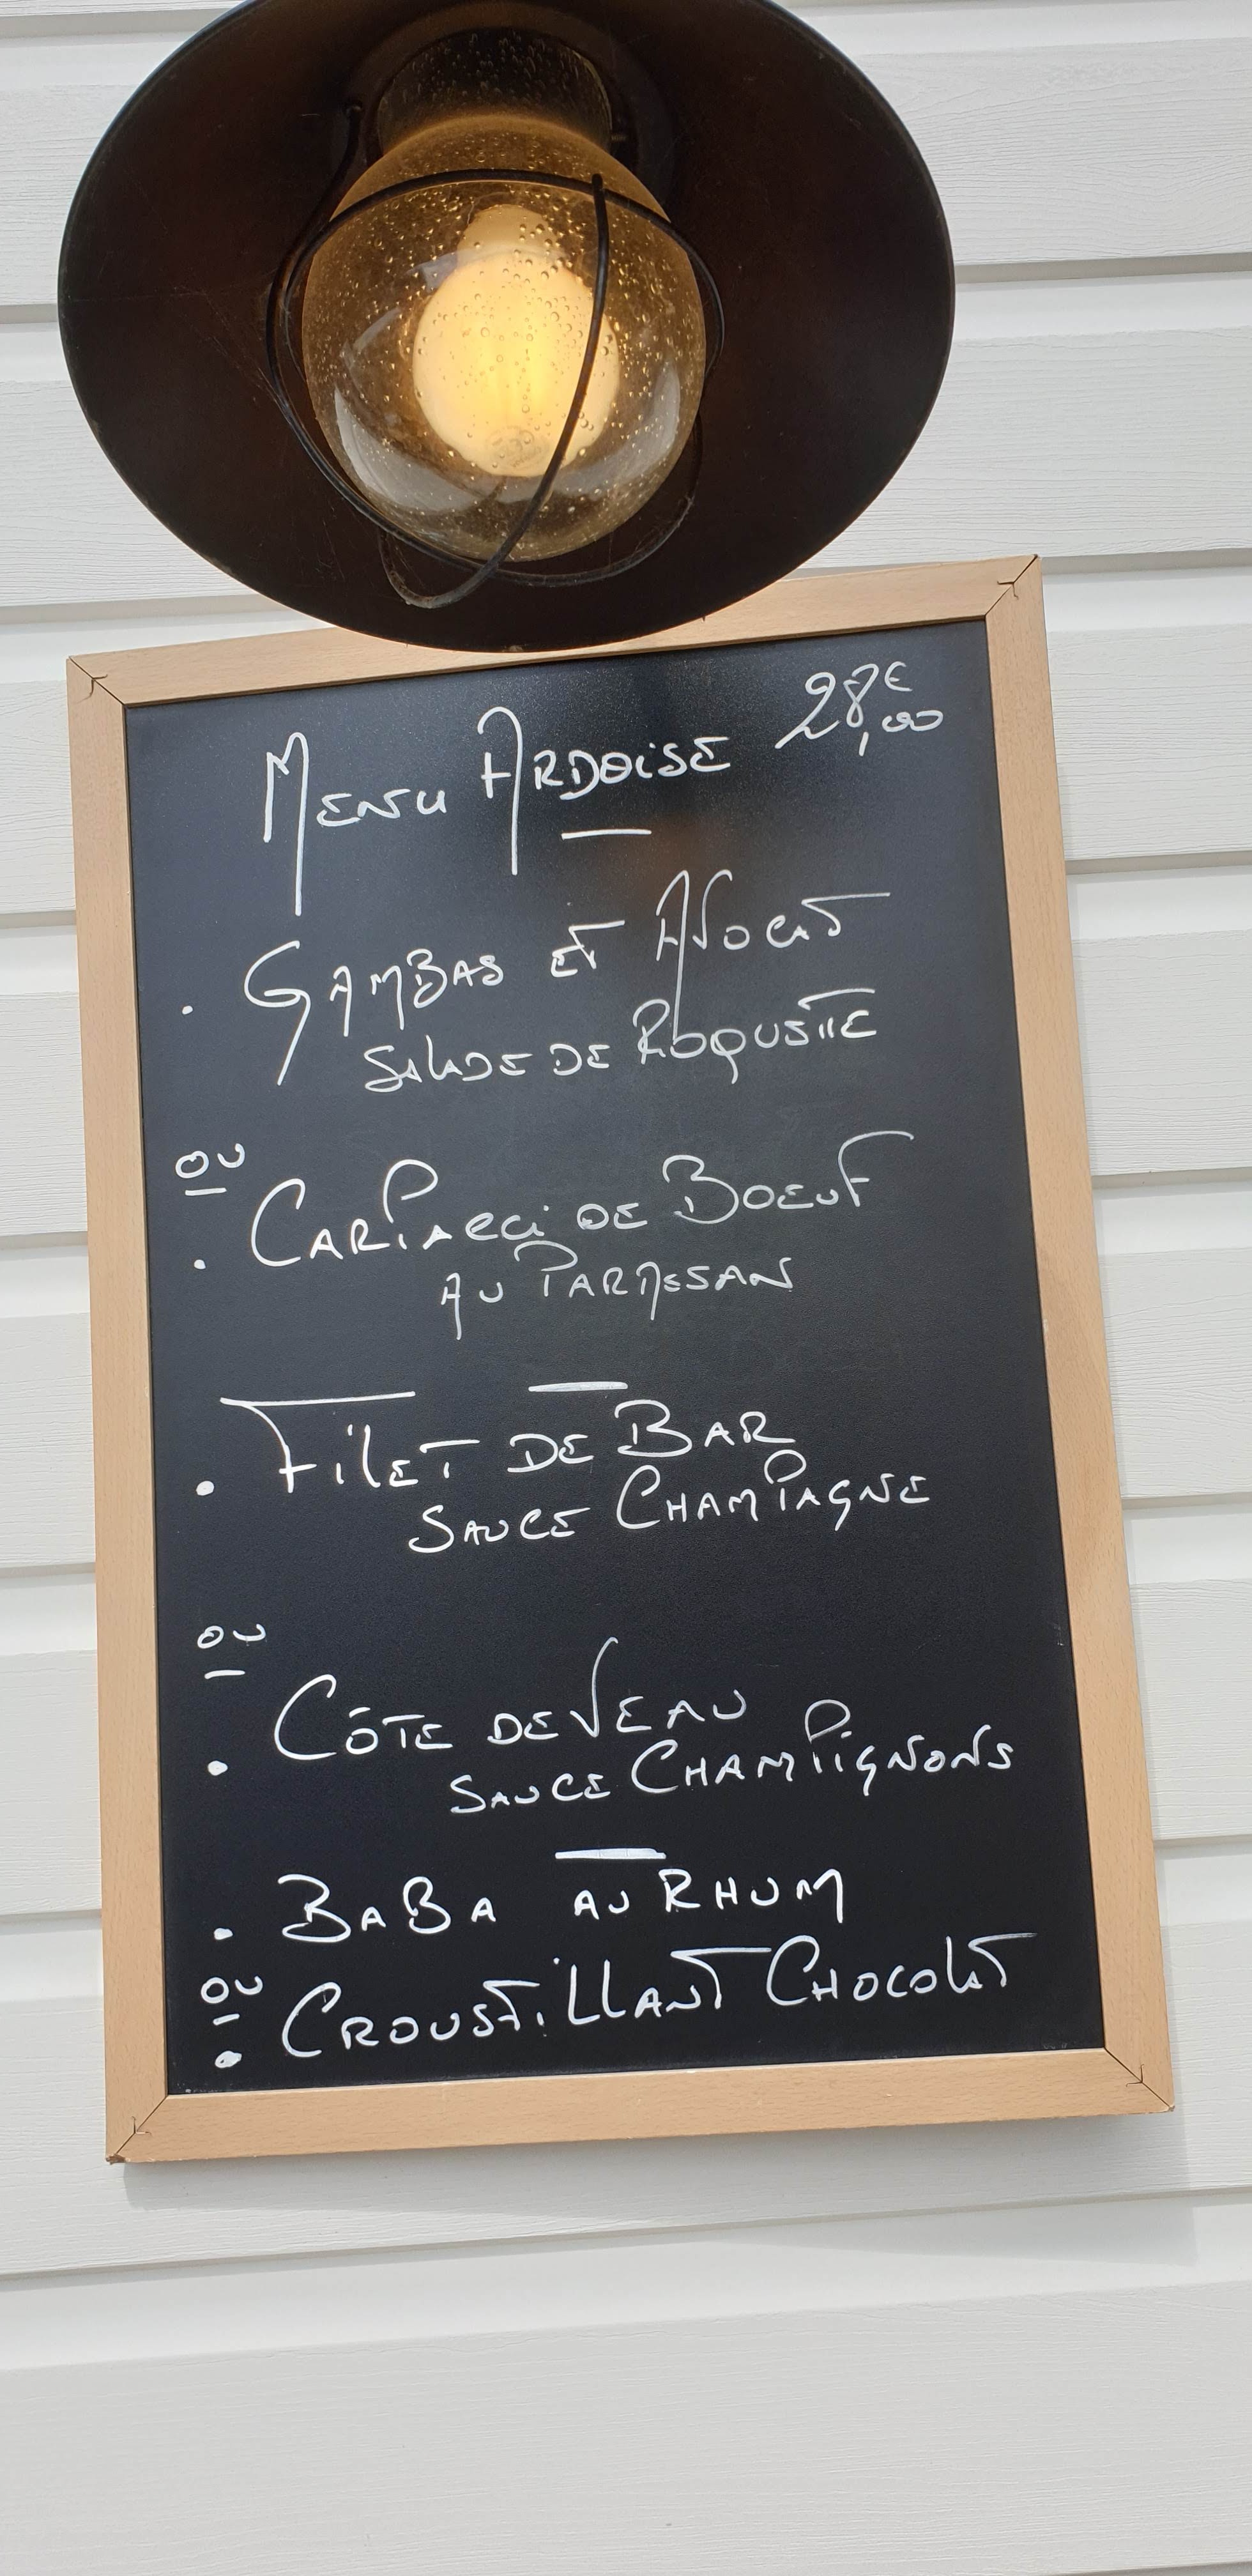 MENU ARDOISE 28,00€
. GAMBAS ET AVOCAT
SALADE DE ROQUETTE
OU
. CARPACCI DE BOEUF
AU PARMESAN
. FILET DE BAR
SAUCE CHAMPAGNE
OU
. CÔTE DE VEAU
SAUCE CHAMPIGNONS
. BABA AU RHUM
OU
. CROUSTILLANT CHOCOLAT